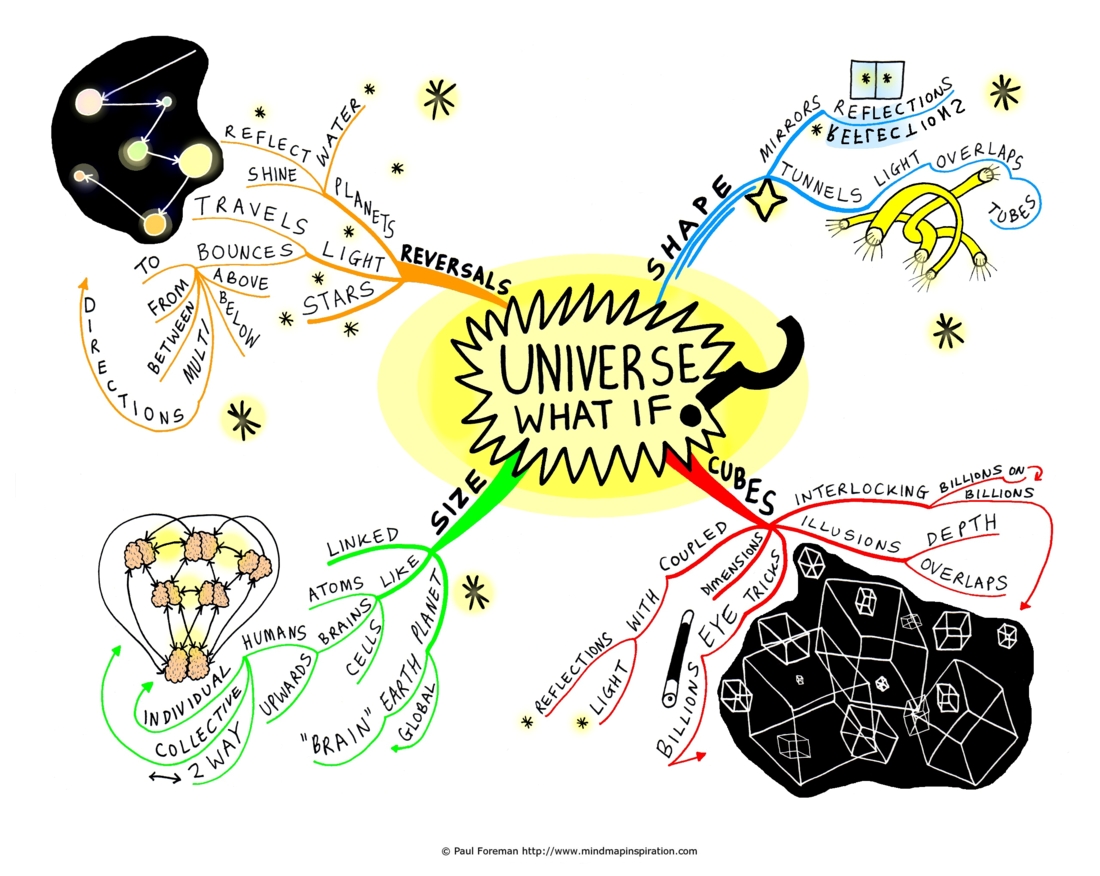 UNIVERSE
WHAT IF ?
REVERSALS
PLANETS
WATER
REFLECT
SHINE
LIGHT
TRAVELS
BOUNCES
TO
FROM
BETWEEN
MULTI
DIRECTIONS
ABOVE
BELOW
STARS
SHAPE
MIRRORS
REFLECTIONS
REFLECTIONS
TUNNELS
LIGHT
OVERLAPS
TUBES
CUBES
INTERLOCKING
BILLIONS ON
BILLIONS
ILLUSIONS
DEPTH
OVERLAPS
EYE TRICKS
BILLIONS
DIMENSIONS
COUPLED
WITH
REFLECTIONS
LIGHT
SIZE
LINKED
LIKE
ATOMS
BRAINS
CELLS
UPWARDS
HUMANS
INDIVIDUAL
COLLECTIVE
2 WAY
PLANET
EARTH
"BRAIN"
GLOBAL
© Paul Foreman http://www.mindmapinspiration.com